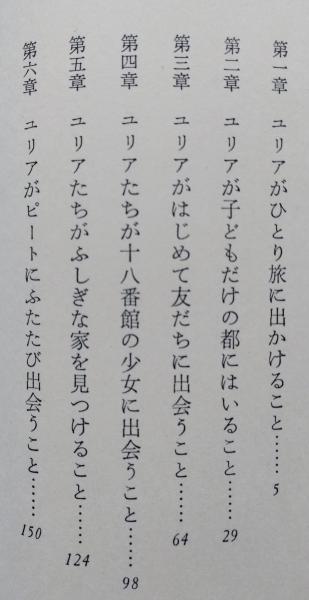 第一章 ユリアがひとり旅に出かけること……5
第二章 ユリアが子どもだけの都にはいること……29
第三章 ユリアがはじめて友だちに出会うこと……64
第四章 ユリアたちが十八番館の少女に出会うこと……98
第五章 ユリアたちがふしぎな家を見つけること……124
第六章 ユリアがピートにふたたび出会うこと……150